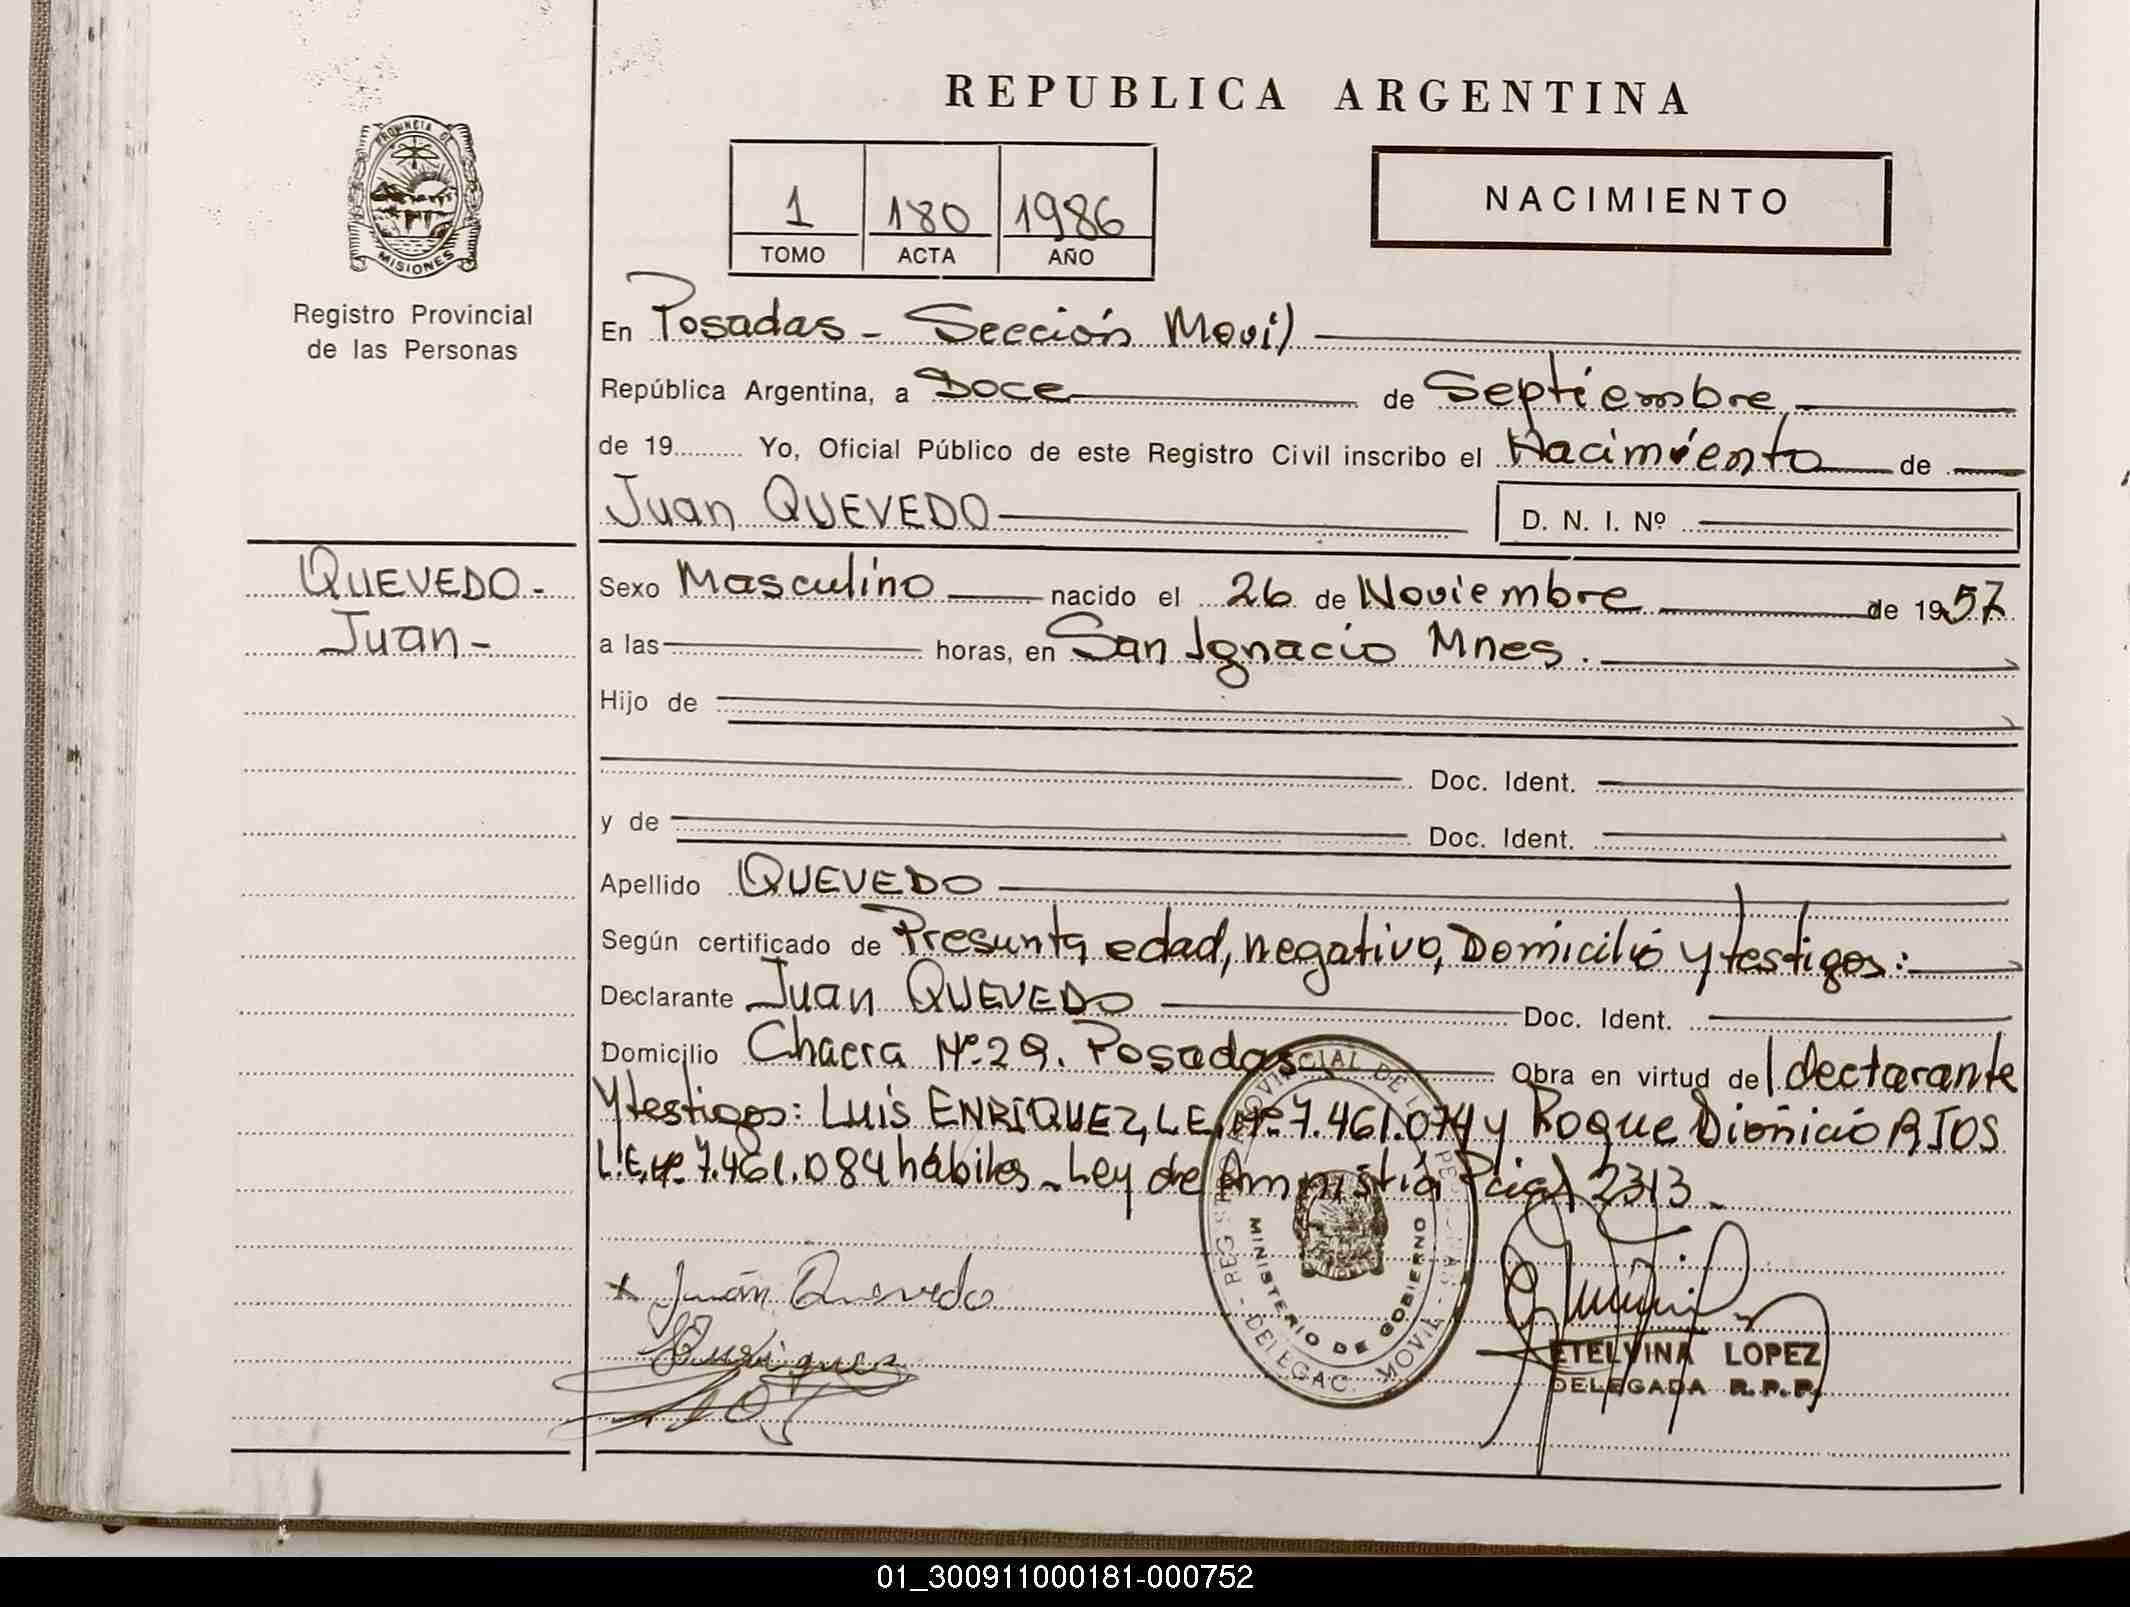 REPUBLICA ARGENTINA
PROVINCIA DE
MISIONES
Registro Provincial
de las Personas
1 180 1986
TOMO ACTA AÑO
NACIMIENTO
En Posadas - Sección Movil
República Argentina, a Doce de Septiembre
de 19 Yo, Oficial Público de este Registro Civil inscribo el Nacimiento de
Juan QUEVEDO D. N. I. Nº
QUEVEDO-
Juan-
Sexo Masculino nacido el 26 de Noviembre de 1957
a las horas, en San Ignacio Mnes.
Hijo de
Doc. Ident.
y de Doc. Ident.
Apellido QUEVEDO
Según certificado de Presunta edad, negativo, Domicilio y testigos:
Declarante Juan QUEVEDO Doc. Ident.
Domicilio Chacra Nº 29. Posadas Obra en virtud del declarante
y testigos: Luis ENRIQUEZ, L.E. Nº 7.461.074 y Roque Dionicio RIOS
L.E. Nº 7.461.084 hábiles - Ley de Amnistía Pcial 2313 -
x Juan Quevedo
MINISTERIO DE GOBIERNO
DELEGAC. MOVIL
ETELVINA LOPEZ
DELEGADA R.P.P.
01_300911000181-000752